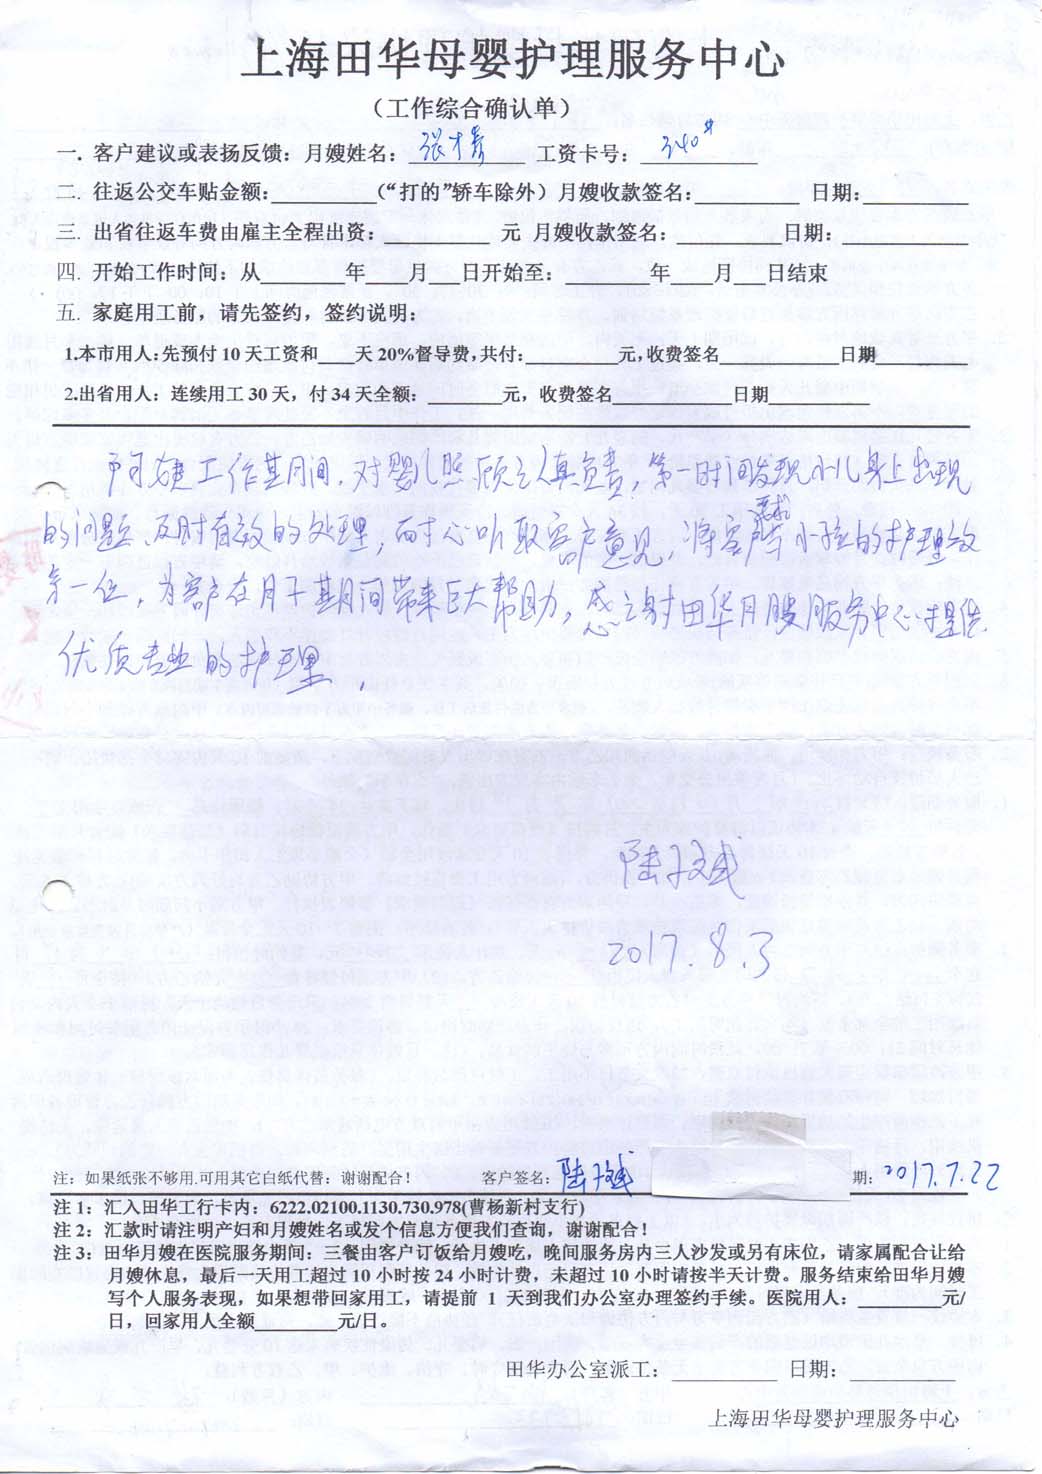 上海田华母婴护理服务中心
（工作综合确认单）
一. 客户建议或表扬反馈：月嫂姓名： 张 工资卡号： 340#
二. 往返公交车贴金额：________（“打的”轿车除外）月嫂收款签名：________ 日期：________
三. 出省往返车费由雇主全程出资：________元 月嫂收款签名：________ 日期：
四. 开始工作时间：从 年 月 日开始至： 年 月 日结束
五. 家庭用工前，请先签约，签约说明：
1.本市用人：先预付 10 天工资和___天 20%督导费，共付：________元，收费签名________日期
2.出省用人：连续用工 30 天，付 34 天全额：________元，收费签名________日期________
阿姨工作期间，对婴儿照顾认真负责，第一时间发现小儿身上出现
的问题，及时有效的处理，耐心听取客户意见，将客户 小孩的护理放
第一位，为客户在月子期间带来巨大帮助，感谢田华月嫂服务中心提供
优质专业的护理。
陆 斌
2017.8.3
注：如果纸张不够用.可用其它白纸代替：谢谢配合！ 客户签名： 陆 斌 期： 2017.7.22
注 1： 汇入田华工行卡内： 6222.02100.1130.730.978(曹杨新村支行)
注 2： 汇款时请注明产妇和月嫂姓名或发个信息方便我们查询，谢谢配合！
注 3： 田华月嫂在医院服务期间：三餐由客户订饭给月嫂吃，晚间服务房内三人沙发或另有床位，请家属配合让给
月嫂休息，最后一天用工超过 10 小时按 24 小时计费，未超过 10 小时请按半天计费。服务结束给田华月嫂
写个人服务表现，如果想带回家用工，请提前 1 天到我们办公室办理签约手续。医院用人：________元/
日，回家用人全额________元/日。
田华办公室派工：________ 日期：________
上海田华母婴护理服务中心